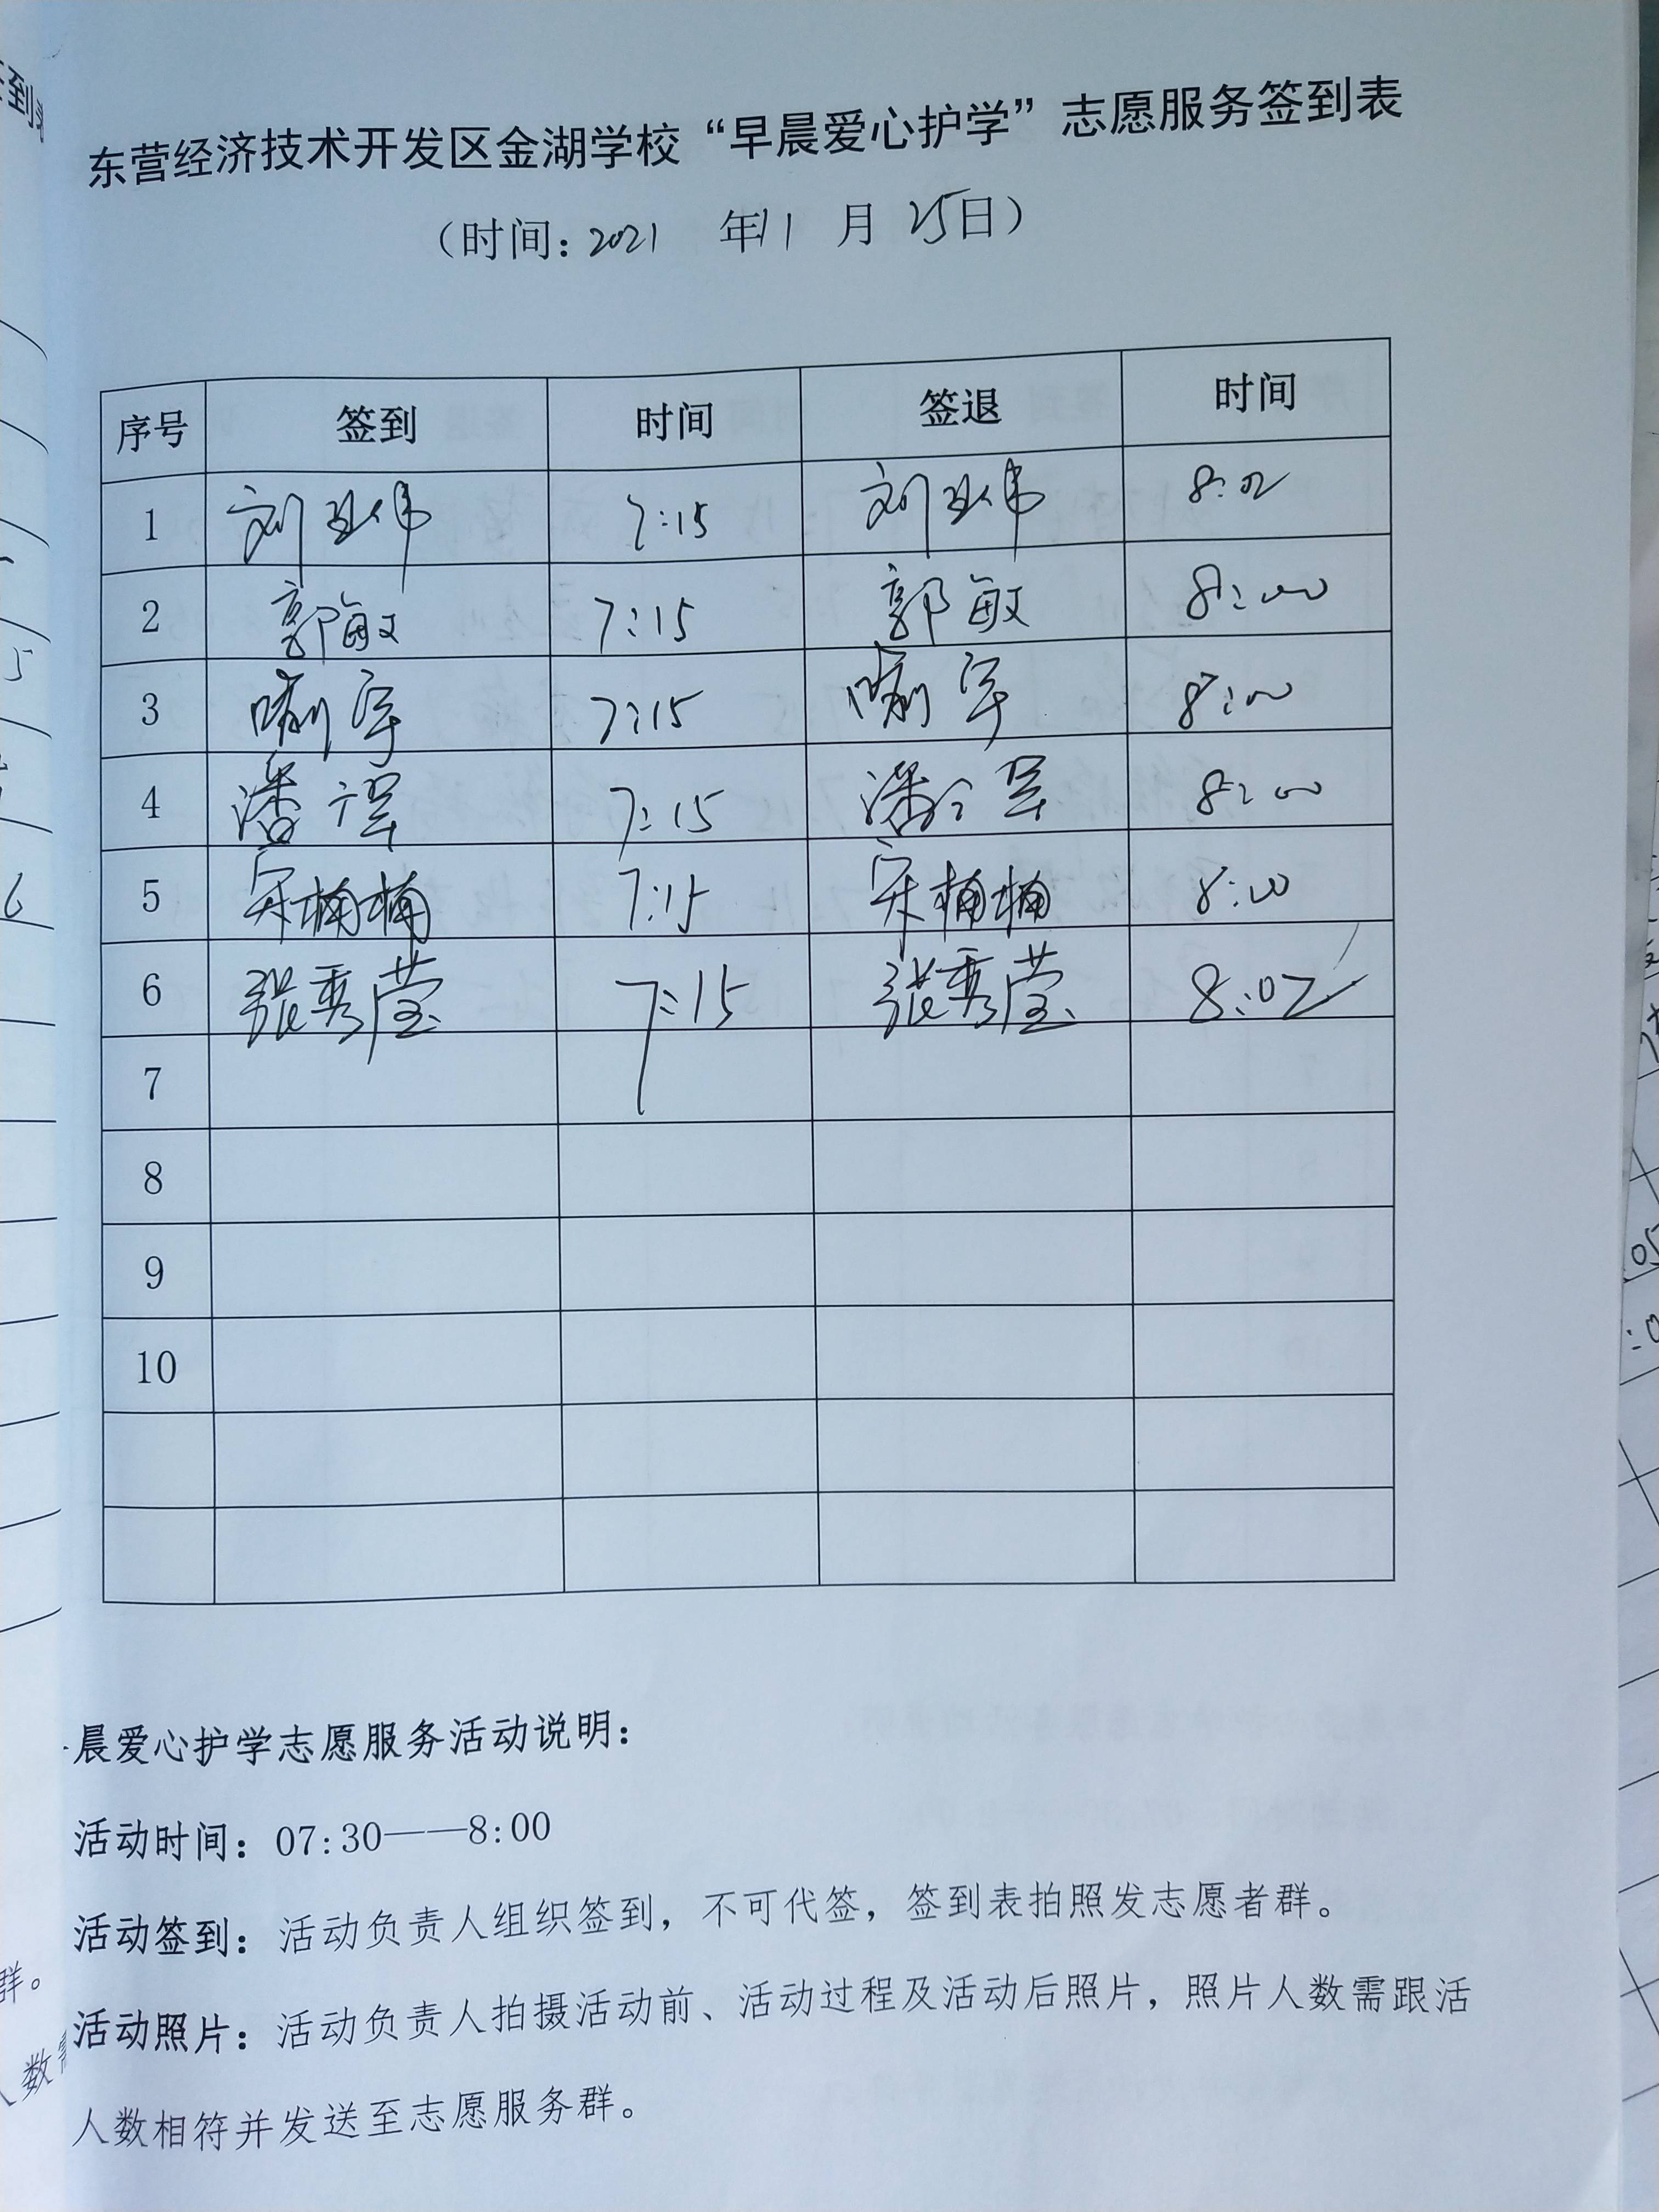 东营经济技术开发区金湖学校“早晨爱心护学”志愿服务签到表
（时间：2021 年11 月 25日）
序号 签到 时间 签退 时间
1 刘亚伟 7:15 刘亚伟 8:02
2 郭敏 7:15 郭敏 8:00
3 7:15 8:00
4 潘 7:15 潘 8:00
5 宋楠楠 7:15 宋楠楠 8:00
6 张秀莹 7:15 张秀莹 8:02
7
8
9
10
晨爱心护学志愿服务活动说明：
活动时间：07:30——8:00
活动签到：活动负责人组织签到，不可代签，签到表拍照发志愿者群。
活动照片：活动负责人拍摄活动前、活动过程及活动后照片，照片人数需跟活
人数相符并发送至志愿服务群。